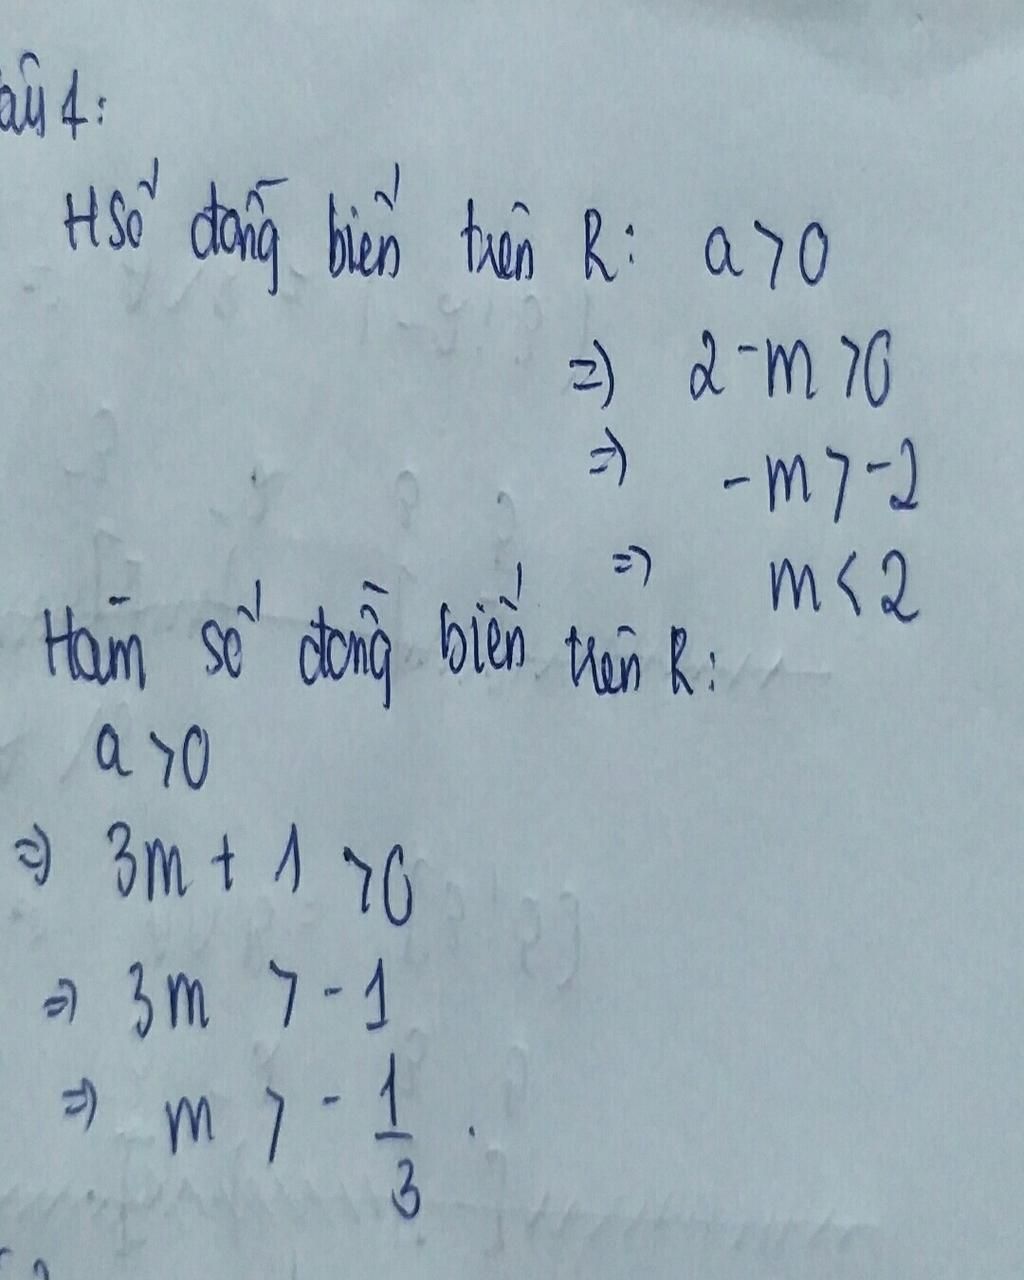 âu 1:
HSố đồng biến trên R: a > 0
=> 2 - m > 0
=> - m > - 2
=> m < 2
Hàm số đồng biến trên R:
a > 0
=> 3m + 1 > 0
=> 3m > - 1
=> m > - 1/3 .